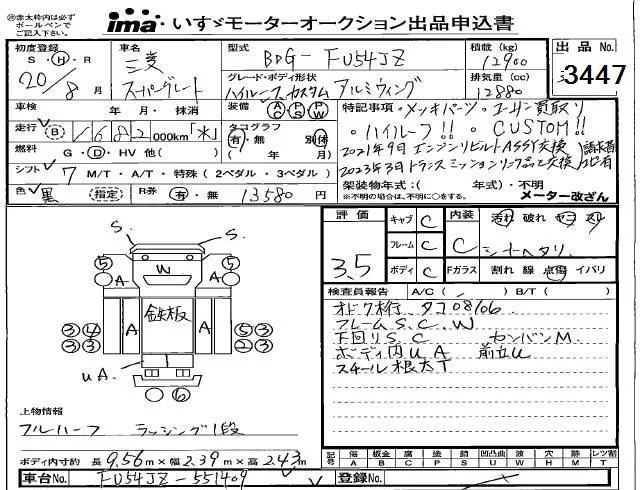 ※赤太枠内は必ずボールペンでご記入下さい。
ima いすゞモーターオークション出品申込書
初度登録 S・H・R 20/8月
車名 三菱 スーパーグレート
型式 BDG-FU54JZ
グレード・ボディ形状 ハイルーフ カスタム アルミウィング
積載(kg) 12900
排気量(cc) 12880
出品No. 3447
車検 年・月・抹消
装備 AC PS PW
特記事項・メッキパーツ・エーサン買取り
・ハイルーフ!! ・CUSTOM!!
走行 B 1682 000km「水」
タコグラフ 有・無 別体 ( 年 月)
2021年9月エンジンリビルトASSY交換
燃料 G・D・HV 他( )
2023年3月トランスミッションリンク品にて交換
シフト 7 M/T・A/T・特殊(2ペダル・3ペダル)
架装物年式:( 年式)・不明
※不明の場合は、不明に○をする。 メーター改ざん
色 黒 (指定) R券 有・無 13580円
評価 3.5
キャブ C
フレーム C
ボディ C
内装 C
汚れ 破れ ヤコ スレ
シートヘタリ
Fガラス 割れ 線 点傷 イバリ
検査員報告 A/C( ) B/T( )
オドク桁、タコ08/06
フレームS.C.W
下回りS.C ケンバンM.
ボディ内UA 前立U
スチール根太T
S. S.
⑤ A W A ⑤
③④ A 鉄板 A ⑤③
③③ ②③
UA
⑥
上物情報
フルハーフ ラッシング1段
ボディ内寸約 長9.56m×幅2.39m×高2.43m
記号 傷A 板金B 腐C 塗P 錆S 凹凸曲U 波W 穴H 跡M レツ割T
車台No. FU54JZ-551409
登録No.